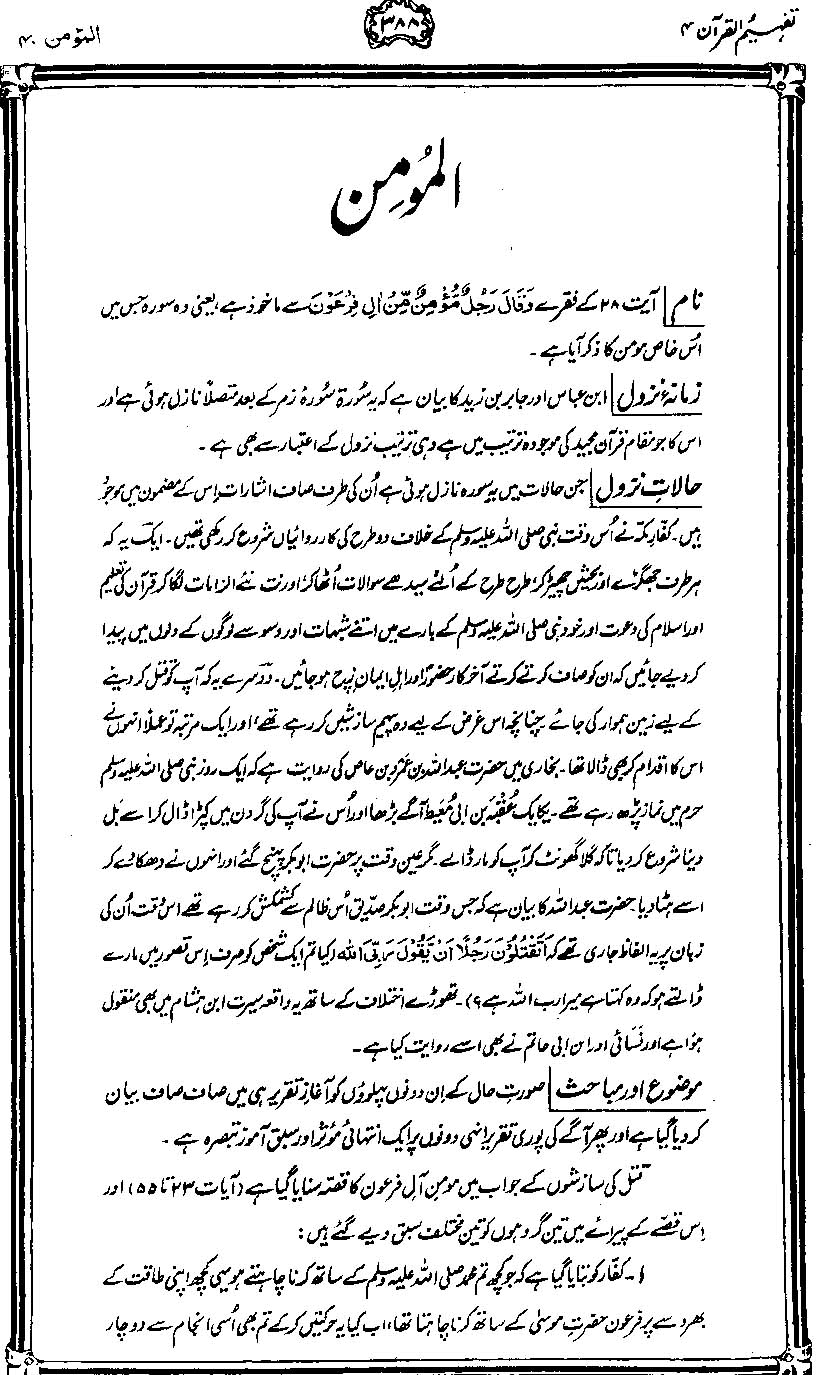 تفہیم القرآن ۴
۳۸۸
المؤمن ۴۰
المؤمن
نام آیت ۲۸ کے فقرے وَقَالَ رَجُلٌ مُّؤْمِنٌ مِّنْ اٰلِ فِرْعَوْنَ سے ماخوذ ہے، یعنی وہ سورہ جس میں
اُس خاص مومن کا ذکر آیا ہے۔
زمانۂ نزول ابن عباس اور جابر بن زید کا بیان ہے کہ یہ سُورۃ سُورۂ زمر کے بعد متصلاً نازل ہوئی ہے اور
اس کا جو مقام قرآن مجید کی موجودہ ترتیب میں ہے وہی ترتیب نزول کے اعتبار سے بھی ہے۔
حالاتِ نزول جن حالات میں یہ سورہ نازل ہوئی ہے اُن کی طرف صاف اشارات اِس کے مضمون میں موجود
ہیں۔ کفارِ مکّہ نے اُس وقت نبی صلی اللہ علیہ وسلم کے خلاف دو طرح کی کارروائیاں شروع کر رکھی تھیں۔ ایک یہ کہ
ہر طرف جھگڑے اور بحثیں چھیڑ کر، طرح طرح کے اُلٹے سیدھے سوالات اُٹھا کر، اور نت نئے الزامات لگا کر قرآن کی تعلیم
اور اسلام کی دعوت اور خود نبی صلی اللہ علیہ وسلم کے بارے میں اتنے شبہات اور وسوسے لوگوں کے دلوں میں پیدا
کر دیے جائیں کہ ان کو صاف کرتے کرتے آخر کار حضورؐ اور اہلِ ایمان زِچ ہو جائیں۔ دوسرے یہ کہ آپ کو قتل کر دینے
کے لیے زمین ہموار کی جائے چنانچہ اس غرض کے لیے وہ پیہم سازشیں کر رہے تھے، اور ایک مرتبہ تو عملاً انہوں نے
اس کا اقدام کر بھی ڈالا تھا۔ بخاری میں حضرت عبداللہ بن عَمْرو بن عاص کی روایت ہے کہ ایک روز نبی صلی اللہ علیہ وسلم
حرم میں نماز پڑھ رہے تھے۔ یکایک عُقْبَہ بن ابی مُعَیط آگے بڑھا اور اُس نے آپ کی گردن میں کپڑا ڈال کر اسے بَل
دینا شروع کر دیا تاکہ گلا گھونٹ کر آپ کو مار ڈالے۔ مگر عین وقت پر حضرت ابوبکر پہنچ گئے اور انہوں نے دھکا دے کر
اسے ہٹا دیا۔ حضرت عبداللہ کا بیان ہے کہ جس وقت ابوبکر صدیق اُس ظالم سے کشمکش کر رہے تھے اس وقت اُن کی
زبان پر یہ الفاظ جاری تھے کہ اَتَقْتُلُوْنَ رَجُلًا اَنْ يَّقُوْلَ رَبِّيَ اللّٰهُ (کیا تم ایک شخص کو صرف اِس قصور میں مارے
ڈالتے ہو کہ وہ کہتا ہے میرا رب اللہ ہے؟)۔ تھوڑے اختلاف کے ساتھ یہ واقعہ سیرت ابن ہشام میں بھی منقول
ہوا ہے اور نَسَائی اور ابن ابی حاتم نے بھی اسے روایت کیا ہے۔
موضوع اور مباحث صورتِ حال کے اِن دونوں پہلوؤں کو آغازِ تقریر ہی میں صاف صاف بیان
کر دیا گیا ہے اور پھر آگے کی پوری تقریر انہی دونوں پر ایک انتہائی مؤثر اور سبق آموز تبصرہ ہے۔
قتل کی سازشوں کے جواب میں مومنِ آلِ فرعون کا قصّہ سنایا گیا ہے (آیات ۲۳ تا ۵۵) اور
اِس قصّے کے پیرائے میں تین گروہوں کو تین مختلف سبق دیے گئے ہیں:
۱- کفّار کو بتایا گیا ہے کہ جو کچھ تم محمد صلی اللہ علیہ وسلم کے ساتھ کرنا چاہتے ہو یہی کچھ اپنی طاقت کے
بھروسے پر فرعون حضرت موسیٰ کے ساتھ کرنا چاہتا تھا، اب کیا یہ حرکتیں کر کے تم بھی اُسی انجام سے دوچار